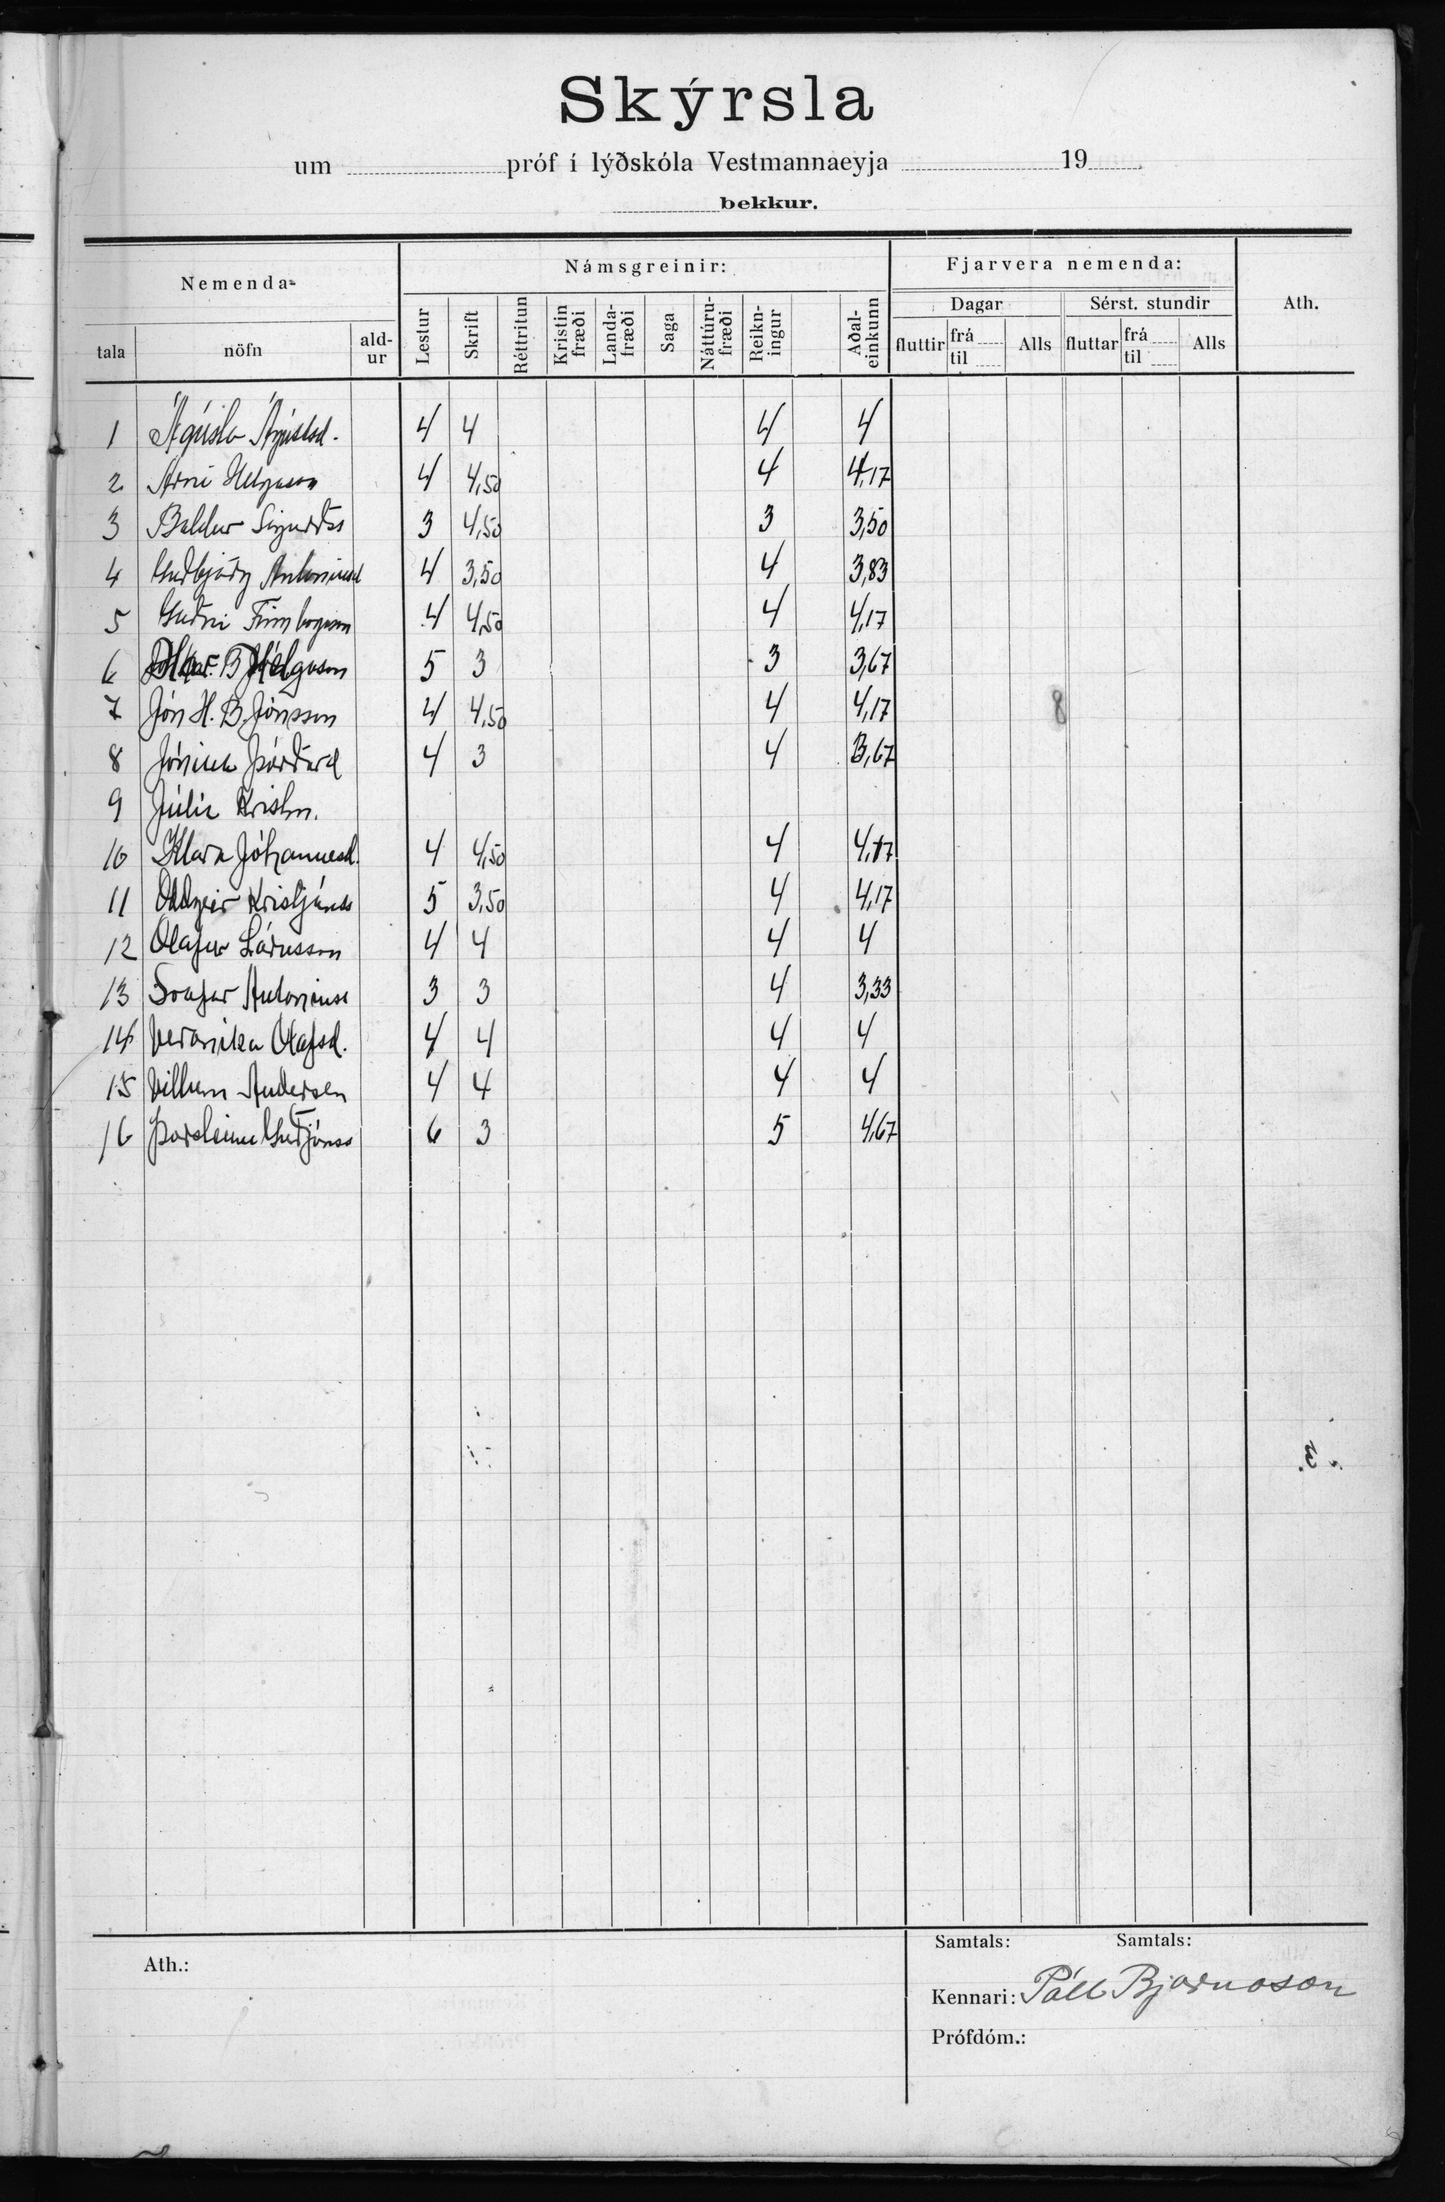 Skýrsla
um próf í lýðskóla Vestmannaeyja 19
bekkur.
Nemenda- Námsgreinir: Fjarvera nemenda: Ath.
Dagar Sérst. stundir
tala nöfn ald-ur Lestur Skrift Réttritun Kristin fræði Landa-fræði Saga Náttúru-fræði Reikn-ingur Aðal-einkunn fluttir frá til Alls fluttar frá til Alls
1 Ágústa Ágústsd. 4 4 4 4
2 Árni Helgason 4 4,50 4 4,17
3 Baldur Sigurðss 3 4,50 3 3,50
4 Guðbjörg Antoniusd 4 3,50 4 3,83
5 Guðni Finnbogason 4 4,50 4 4,17
6 B Helgason 5 3 3 3,67
7 Jón H. B. Jónsson 4 4,50 4 4,17 8
8 Jónína Þórðard 4 3 4 3,67
9 Júlía Kristn.
10 Klara Jóhannesd. 4 4,50 4 4,17
11 Oddgeir Kristjánss 5 3,50 4 4,17
12 Olafur Lárusson 4 4 4 4
13 Svafar Antoniuss 3 3 4 3,33
14 Veronika Olafsd. 4 4 4 4
15 Vilhem Andersen 4 4 4 4
16 Þorsteinn Guðjónss 6 3 5 4,67
Ath.:
Samtals: Samtals:
Kennari: Páll Bjarnason
Prófdóm.: